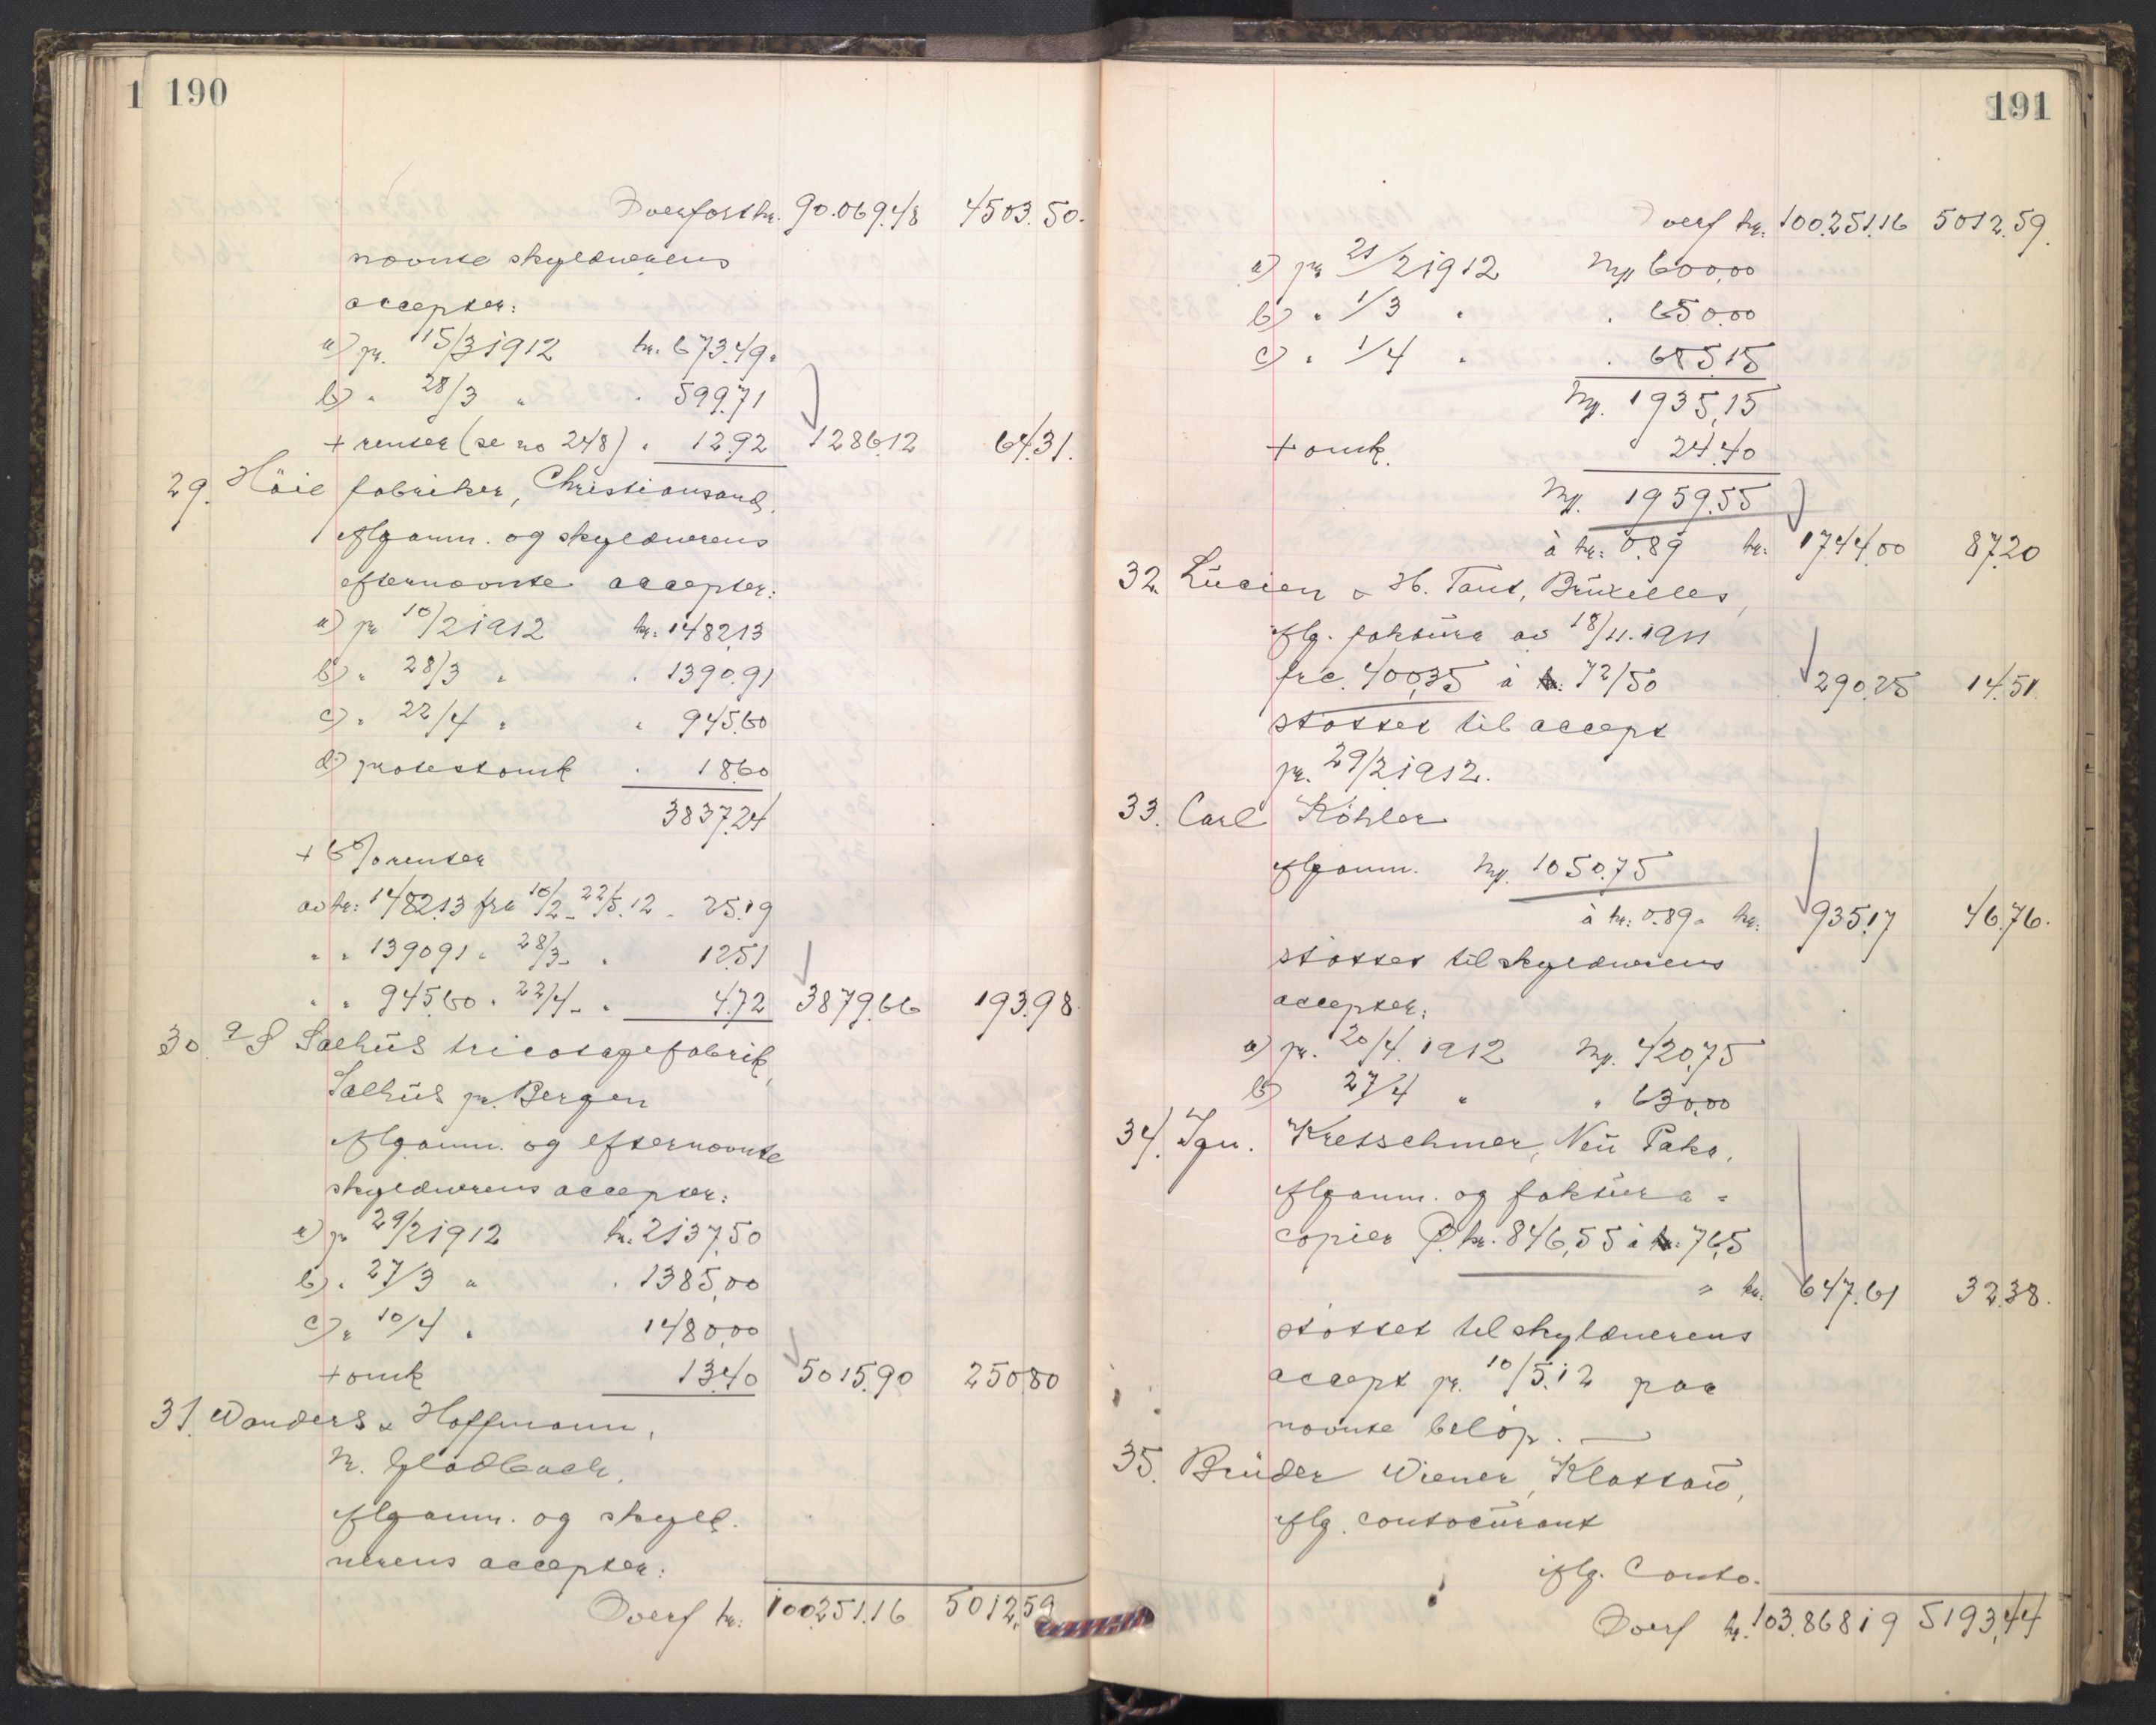 1 190
Overført kr. 90.069.48 4503.50.
nævnte skyldnerens
accepter:
a) pr. 15/3 1912 kr. 673.49.
b) " 28/3 " " 599.71
+ renter (se no 248) " 12.92 1286.12 64.31.
29. Höie fabriker, Christiansand,
iflg anm. og skyldnerens
efternævnte accepter:
a) pr 10/2 1912 kr. 1482.13
b) " 28/3 " " 1390.91
c) " 22/4 " " 945.60
d) protestomk " 18.60
3837.24
+ 6 % renter
av kr: 1482.13 fra 10/2 - 22/5.12 - 25.19
" " 1390.91 " 28/3 - " 12.51
" " 945.60 " 22/4 - " 4.72 3879.66 193.98
30. A/S Salhus tricotagefabrik,
Salhus pr. Bergen
iflg anm. og efternævnte
skyldnerens accepter:
a) pr 29/2 1912 kr. 2137,50
b) " 27/3 " " 1385,00
c) " 10/4 " 1480,00
+ omk 13.40 5015.90 250.80
31. Wanders & Hoffmann,
M. Gladbach.
iflg anm. og skyld-
nerens accepter:
Overf kr: 100.251.16 5012,59
191
Overf kr. 100.251.16 5012.59.
a) pr 21/2 1912 Mk 600,00
b) " 1/3 " " 650.00
c) " 1/4 " " 685.15
Mk. 1935,15
+ omk. 24.40
Mk. 1959.55
à kr: 0.89 kr. 1744.00 87.20
32. Lucien & H. Tant, Bruxelles,
iflg. faktura av 18/11.1911
frc. 400,35 à 72/50 290.25 14.51
støttet til accept
pr. 29/2 1912.
33. Carl Köhler
iflg anm. Mk. 1050.75
à kr: 0.89 - kr. 935.17 46.76.
støttet til skyldnerens
accepter:
a) pr. 20/4. 1912 Mk. 420,75
b) 27/4 " " 630,00
34. Ign. Kretschmer, Neu Paka,
iflg anm. og faktura-
copier Ø. kr. 846,55 à 76,5
= kr. 647.61 32.38.
støttet til skyldnerens
accept pr. 10/5.12 paa
nævnte beløp.
35. Brüder Wiener, Klattau,
iflg. contocurant
iflg. Conto.
Overf kr. 103.868 19 5193,44